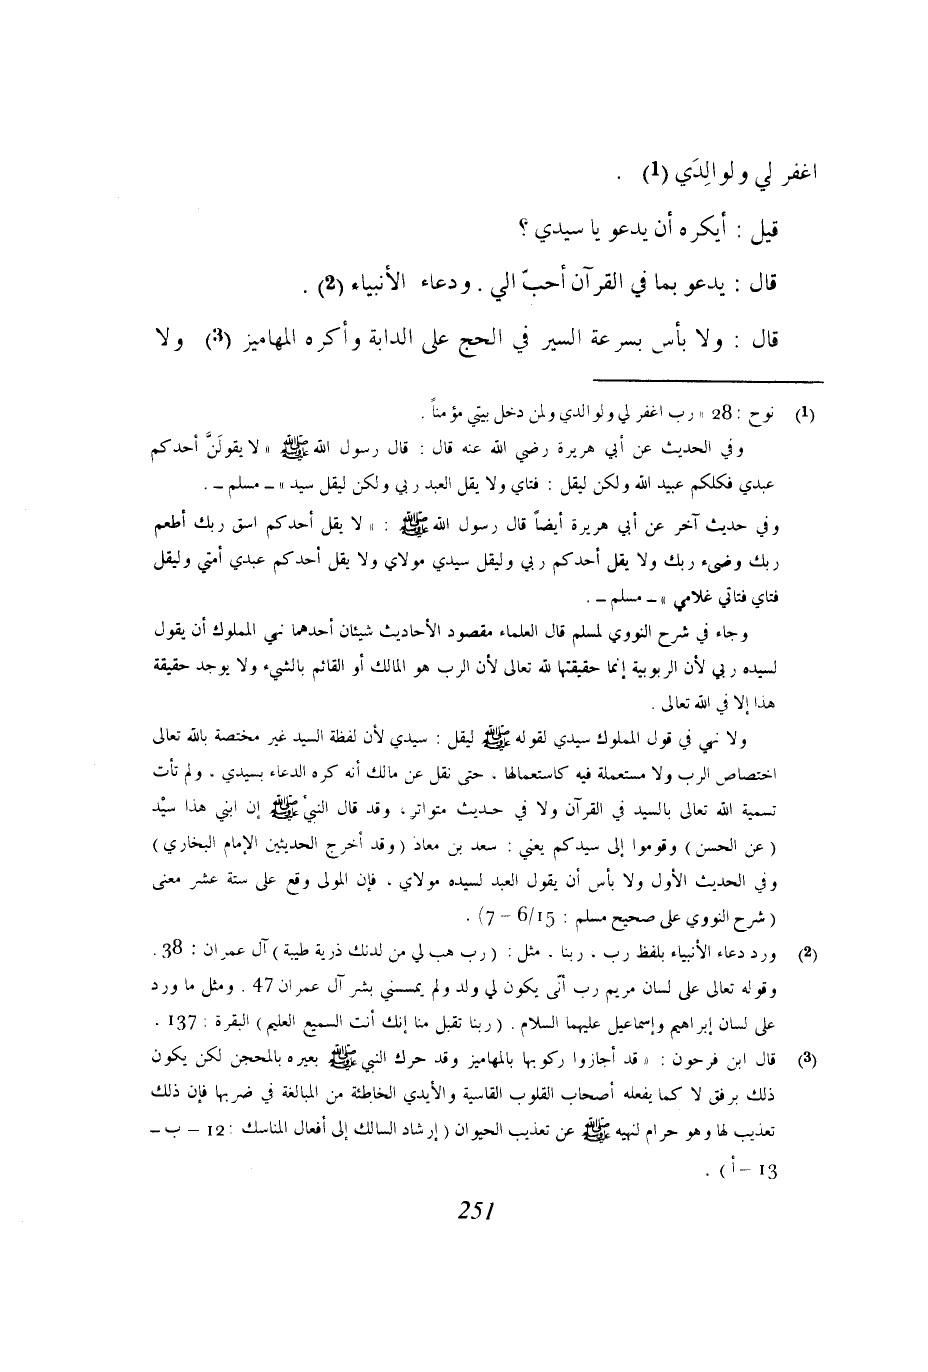 اغفر لي ولوالِدَي (1) .
قيل : أيكره أن يدعو يا سيدي ؟
قال : يدعو بما في القرآن أحبّ الي . ودعاء الأنبياء (2) .
قال : ولا بأس بسرعة السير في الحج على الدابة وأكره المهاميز (3) ولا
(1) نوح : 28 « رب اغفر لي ولوالدي ولمن دخل بيتي مؤمناً .
وفي الحديث عن أبي هريرة رضي الله عنه قال : قال رسول الله ﷺ « لا يقولَنَّ أحدكم
عبدي فكلكم عبيد الله ولكن ليقل : فتاي ولا يقل العبد ربي ولكن ليقل سيد » ـ مسلم ـ .
وفي حديث آخر عن أبي هريرة أيضاً قال رسول الله ﷺ : « لا يقل أحدكم اسق ربك أطعم
ربك وضىء ربك ولا يقل أحدكم ربي وليقل سيدي مولاي ولا يقل أحدكم عبدي أمتي وليقل
فتاي فتاتي غلامي » ـ مسلم ـ .
وجاء في شرح النووي لمسلم قال العلماء مقصود الأحاديث شيئان أحدهما نهي المملوك أن يقول
لسيده ربي لأن الربوبية إنما حقيقتها لله تعالى لأن الرب هو المالك أو القائم بالشيء ولا يوجد حقيقة
هذا إلا في الله تعالى .
ولا نهي في قول المملوك سيدي لقوله ﷺ ليقل : سيدي لأن لفظة السيد غير مختصة بالله تعالى
اختصاص الرب ولا مستعملة فيه كاستعمالها ، حتى نقل عن مالك أنه كره الدعاء بسيدي ، ولم تأت
تسمية الله تعالى بالسيد في القرآن ولا في حديث متواتر ، وقد قال النبي ﷺ إن ابني هذا سيّد
( عن الحسن ) وقوموا إلى سيدكم يعني : سعد بن معاذ ( وقد أخرج الحديثين الإمام البخاري )
وفي الحديث الأول ولا بأس أن يقول العبد لسيده مولاي ، فإن المولى وقع على ستة عشر معنى
( شرح النووي على صحيح مسلم : 6/15 – 7) .
(2) ورد دعاء الأنبياء بلفظ رب ، ربنا . مثل : ( رب هب لي من لدنك ذرية طيبة ) آل عمران : 38 .
وقوله تعالى على لسان مريم رب أنّى يكون لي ولد ولم يمسسني بشر آل عمران 47 . ومثل ما ورد
على لسان إبراهيم وإسماعيل عليهما السلام . ( ربنا تقبل منا إنك أنت السميع العليم ) البقرة : 137 .
(3) قال ابن فرحون : « قد أجازوا ركوبها بالمهاميز وقد حرك النبي ﷺ بعيره بالمحجن لكن يكون
ذلك برفق لا كما يفعله أصحاب القلوب القاسية والأيدي الخاطئة من المبالغة في ضربها فإن ذلك
تعذيب لها وهو حرام لنهيه ﷺ عن تعذيب الحيوان ( إرشاد السالك إلى أفعال المناسك : 12 – ب –
13 – أ ) .
251